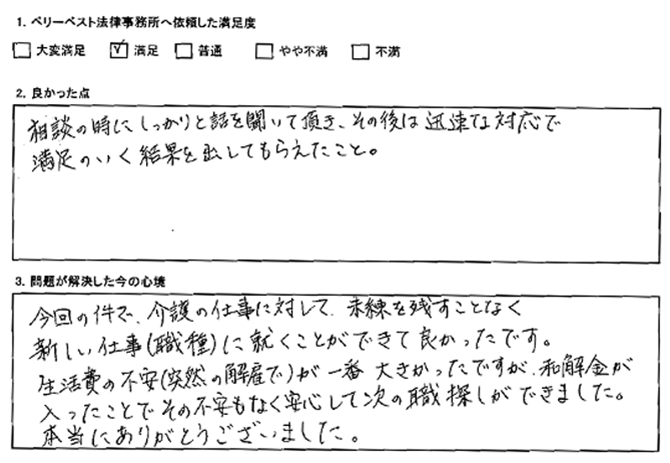 1. ベリーベスト法律事務所へ依頼した満足度
□ 大変満足 ☑ 満足 □ 普通 □ やや不満 □ 不満
2. 良かった点
相談の時にしっかりと話を聞いて頂き、その後は迅速な対応で
満足のいく結果を出してもらえたこと。
3. 問題が解決した今の心境
今回の件で、介護の仕事に対して、未練を残すことなく
新しい仕事(職種)に就くことができて良かったです。
生活費の不安(突然の解雇で)が一番大きかったですが、和解金が
入ったことでその不安もなく安心して次の職探しができました。
本当にありがとうございました。